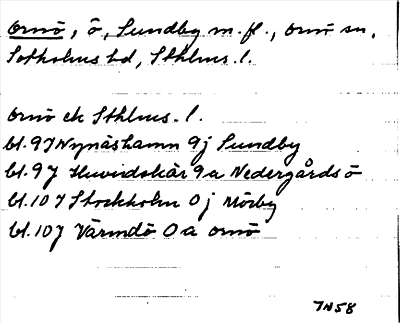 Ornö, ö, Sundby m. fl., Ornö sn,
Sotholms hd, Sthlms. l.
Ornö ek Sthlms. l.
bl. 97 Nynäshamn 9j Sundby
bl. 97 Huvudskär 9a Nedergårdsö
bl. 107 Stockholm 0j Mörby
bl. 107 Värmdö 0a Ornö
7N58